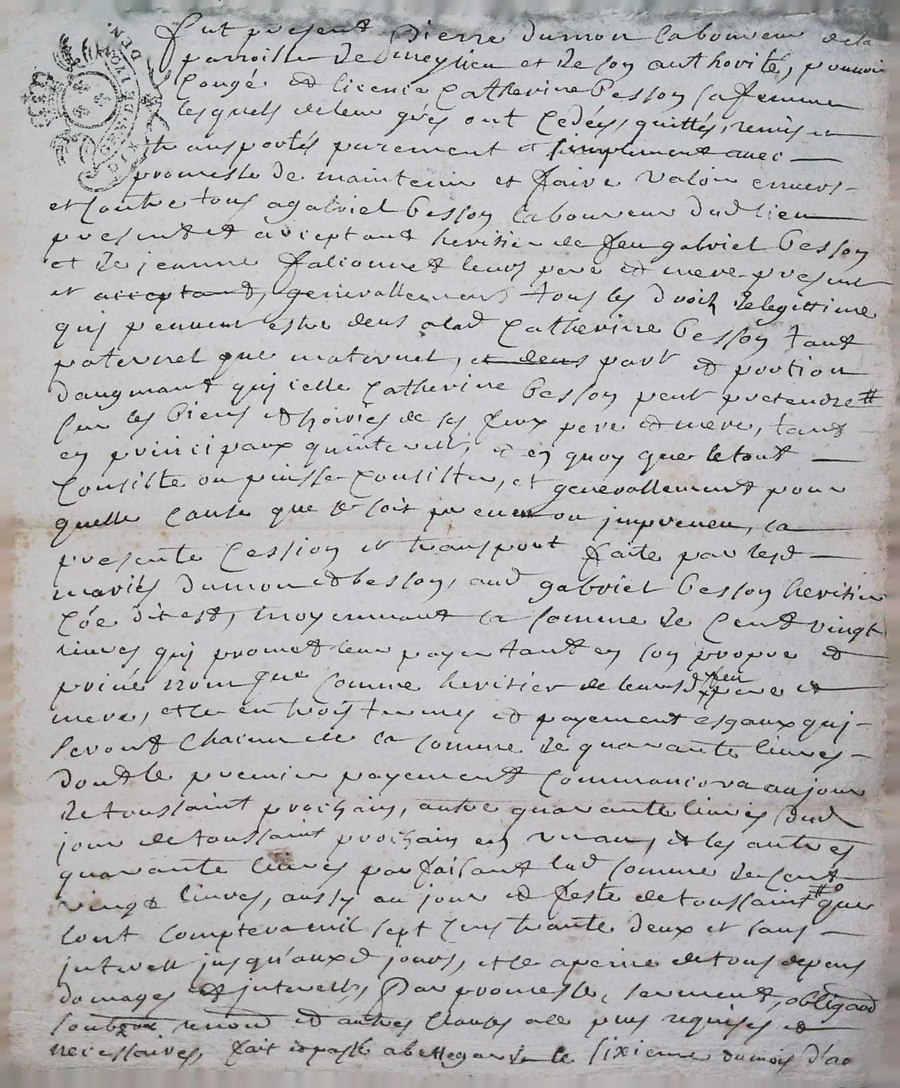 fut present Pierre dumon laboureur de la
parroisse de Ineylieu et de son authorité, pouvoir
Congé et licence Catherine besson sa femme
lesquels de leur grés ont Cedés, quittés, remis et
transportés purement et simplement avec
promesse de maintenir et faire valoir envers
et Contre tous a gabriel besson laboureur dud lieu
present et acceptant heritier de feu gabriel besson
et de jeanne falconnet leurs pere et mere present
et acceptant, generallement tous les droits de legittime
qui peuvent estre deus a lad Catherine besson tant
paternel que maternel, et deus part et portion
daugmant qui icelle Catherine besson peut pretendre #
sur les biens et hoiries de ses feux pere et mere, tant
en principaux qu'interests, et en quoy que le tout
Consiste ou puisse Consister, et generallement pour
quelle Cause que se soit preveu ou impreveu, la
presente Cession et transport faite par lesd
mariés dumon et besson, aud gabriel besson heritier
Coe dit est, moyennant la somme de Cent vingt
livres qui promet leur payer tant en son propre et
privé nom que Comme heritier de leursd feu pere et
mere, et ce en trois termes et payements esgaux qui
seront chacun de la somme de quarante livres
dont le premier payement Commancera au jour
de toussaint prochain, autre quarante livres dud
jour de toussaint prochain en un an, et les autres
quarante livres parfaisant lad somme de Cent
vingt livres, aussy au jour et feste de toussaint # que
lont comptera mil sept Cens trante deux et sans
interest jusqu'auxd jours, et a peine de tous depens
domages et interests, Par promesse, serment, obligaon
soubzon renon et autres clauses a ce plus requises et
necessaires, fait et passé a bellegarde le sixieme du mois d'ao